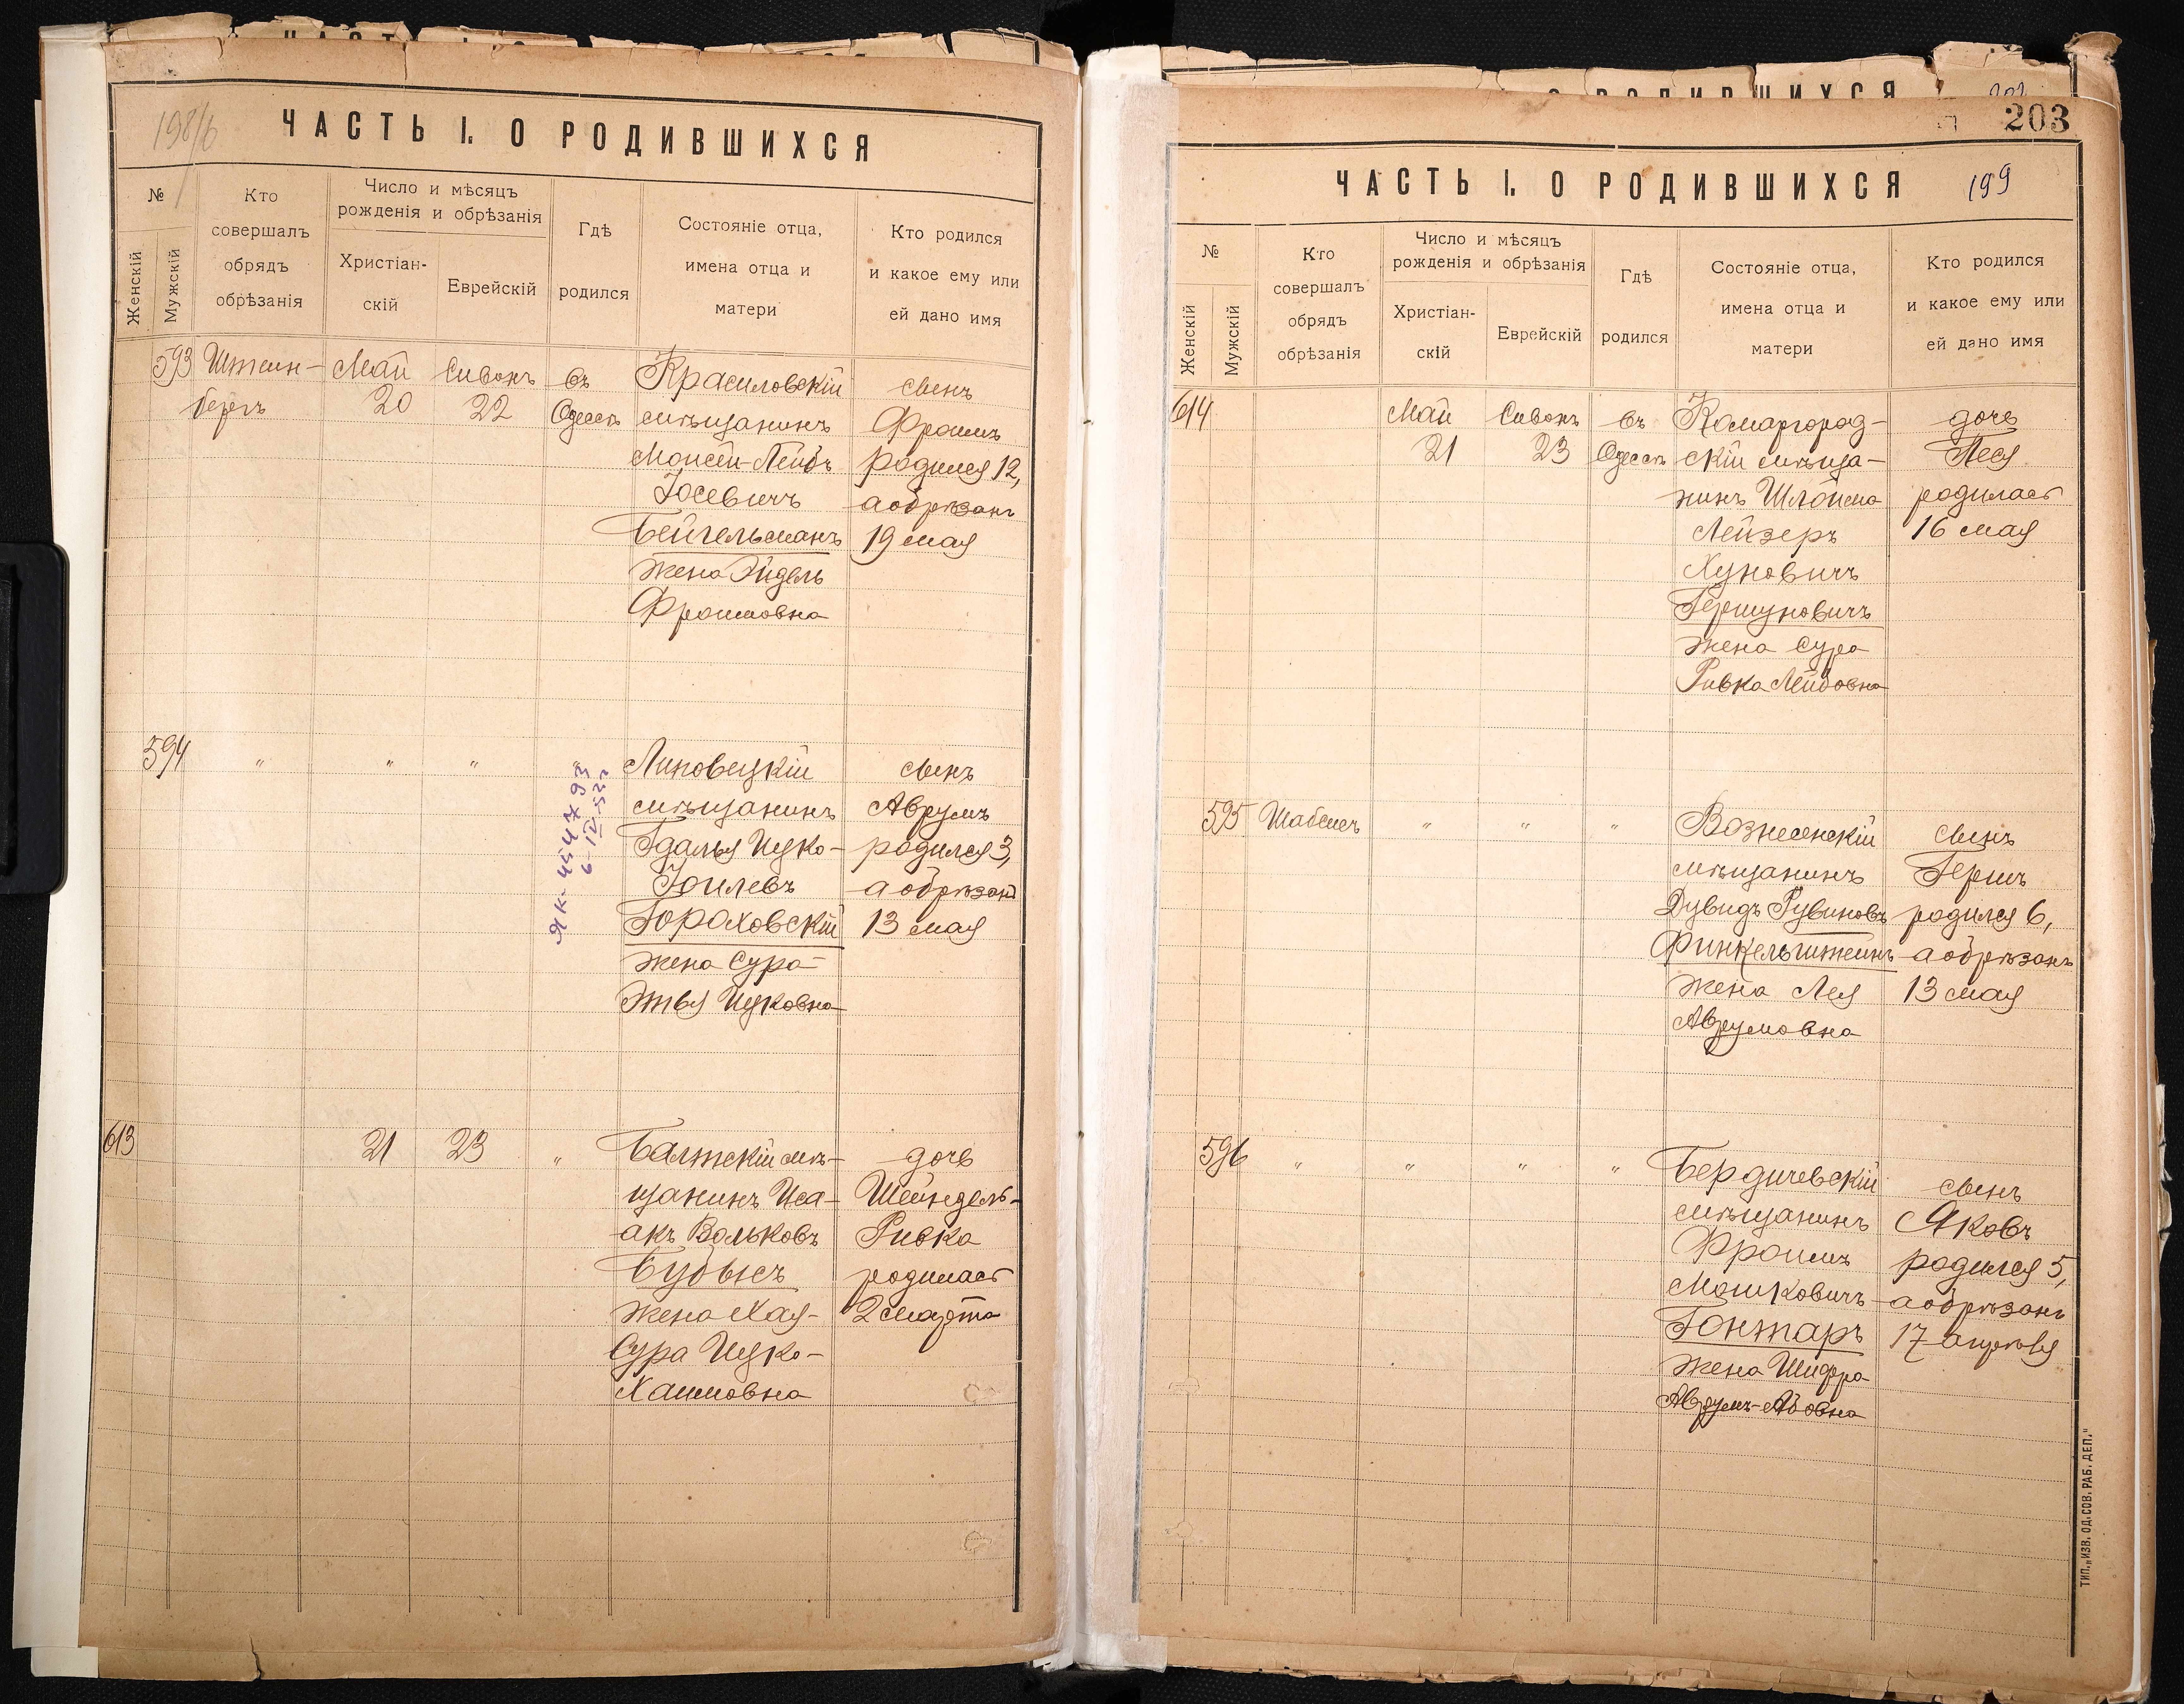 198/б
ЧАСТЬ I. О РОДИВШИХСЯ
№
Женскій
Мужскій
Кто
совершалъ
обрядъ
обрѣзанія
Число и мѣсяцъ
рожденія и обрѣзанія
Христіан-
скій
Еврейскій
Гдѣ
родился
Состояніе отца,
имена отца и
матери
Кто родился
и какое ему или
ей дано имя
593 Штейн- Май Сивонъ въ Красиловскій сынъ
бергъ 20 22 Одессѣ мѣщанинъ Фроимъ
Мойсей-Лейбъ родился 12,
Іосевичъ а обрѣзанъ
Бейгельманъ 19 мая
жена Эйдель
Фроимовна
594 " " " " Липовецкій сынъ
мѣщанинъ Аврумъ
Гдалья Ицко- родился 3,
Іойлевъ а обрѣзанъ
Гораховскій 13 мая
жена Сура-
Этья Ицковна
ЯК-454793
6-IV-52г
613 21 23 " Балтскій мѣ- дочь
щанинъ Иса- Шейндель-
акъ Вольковъ Ривка
Будысъ родилась
жена Хая- 2 марта
Сура Ицко-
Хаимовна
203
ЧАСТЬ I. О РОДИВШИХСЯ 199
№
Женскій
Мужскій
Кто
совершалъ
обрядъ
обрѣзанія
Число и мѣсяцъ
рожденія и обрѣзанія
Христіан-
скій
Еврейскій
Гдѣ
родился
Состояніе отца,
имена отца и
матери
Кто родился
и какое ему или
ей дано имя
614 Май Сивонъ въ Комаргород- дочь
21 23 Одессѣ скій мѣща- Песя
нинъ Шлойма родилась
Лейзеръ 16 мая
Хуновичъ
Гершуновичъ
жена Сура
Ривка Лейбовна
595 Шабсис " " " Вознесенскій сынъ
мѣщанинъ Гершъ
Дувидъ Рувиновъ родился 6,
Финкельштейнъ а обрѣзанъ
жена Лея 13 мая
Аврумовна
596 " " " " Бердичевскій сынъ
мѣщанинъ Яковъ
Фроимъ родился 5,
Мошковичъ а обрѣзанъ
Гонтаръ 17 апрѣля
жена Шифра
Аврумъ-Абовна
ТИП. „ИЗВ. ОД. СОВ. РАБ. ДЕП."